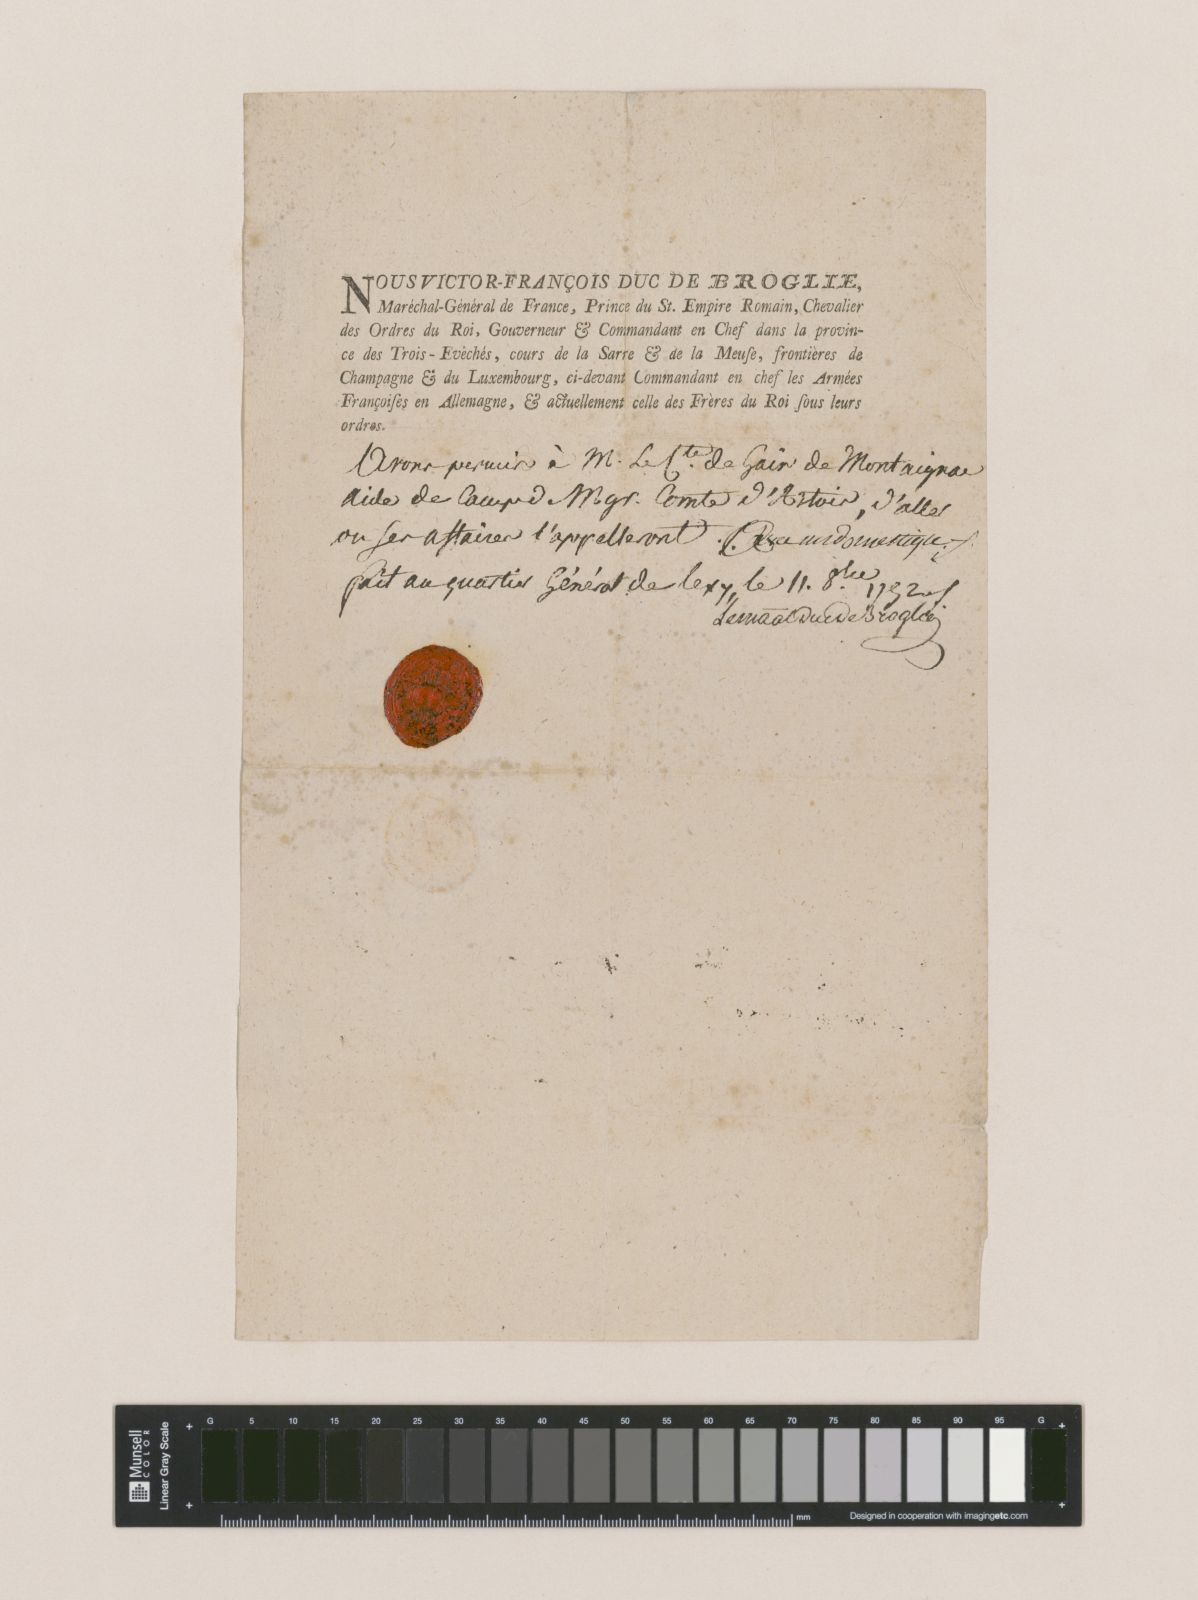 NOUS VICTOR-FRANÇOIS DUC DE BROGLIE,
Maréchal-Général de France, Prince du St. Empire Romain, Chevalier
des Ordres du Roi, Gouverneur & Commandant en Chef dans la provin-
ce des Trois-Evêchés, cours de la Sarre & de la Meuſe, frontières de
Champagne & du Luxembourg, ci-devant Commandant en chef les Armées
Françoiſes en Allemagne, & actuellement celle des Frères du Roi ſous leurs
ordres.
Avons permis à M. Le Cte. de Gain de Montaignac
aide de Camp de Mgr. Comte d'Artois, d'aller
ou ses affaires l'appelleront. un domestique
fait au quartier Général de le 11. 8bre 1792
Le mãal Duc de Broglie
Munsell
COLOR
Linear Gray Scale
G 5 10 15 20 25 30 35 40 45 50 55 60 65 70 75 80 85 90 95 G
mm
Designed in cooperation with imagingetc.com